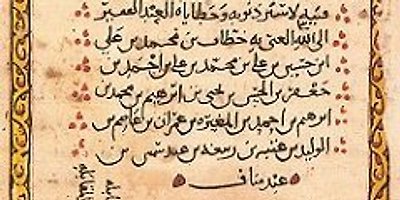 لاستر ذنوبه وخطاياه العبد الفقير
الى الله الغني به خطاب بن محمد بن علي
ابن حسين بن علي بن محمد بن علي بن احمد بن
جعفر بن بن يحيى بن ابرهيم بن محمد بن
ابرهيم بن احمد بن المغيره بن عمران بن عاصم بن
الوليد بن عتبه بن ربيعه بن عبد شمس بن
عبد مناف